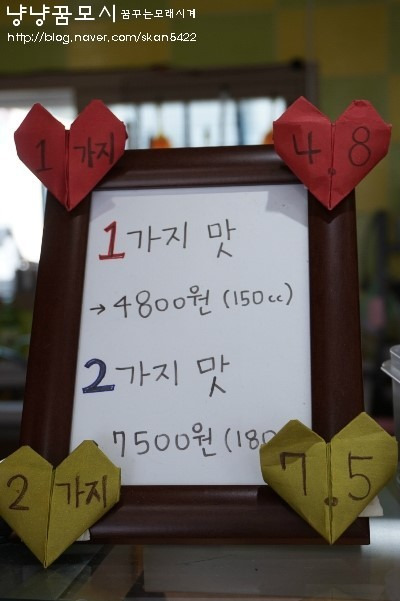 냥냥꿈모시 꿈꾸는모래시계
http://blog.naver.com/skan5422
1 가지
4.8
1가지 맛
→4800원 (150cc)
2가지 맛
7500원 (180
2 가지
7.5